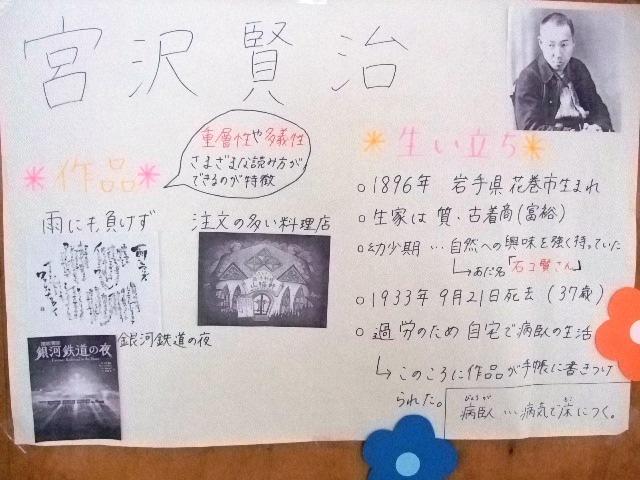 宮沢賢治
作品
重層性や多義性
さまざまな読み方が
できるのが特徴
雨にも負けず
注文の多い料理店
銀河鉄道の夜
銀河鉄道の夜
生い立ち
○1896年 岩手県花巻市生まれ
○生家は質・古着商(富裕)
○幼少期…自然への興味を強く持っていた
↳あだ名「石コ賢さん」
○1933年9月21日死去(37歳)
○過労のため自宅で病臥の生活
↳このころに作品が手帳に書きつけ
られた。
病臥…病気で床につく。
びょうが
とこ